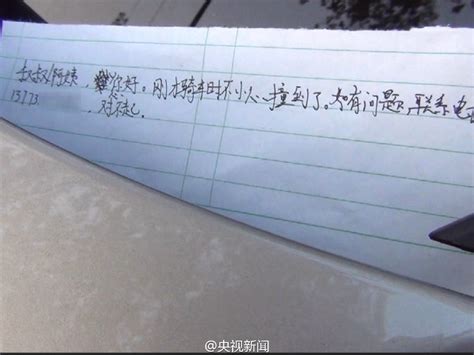 叔叔/阿姨 你好。刚才骑车时不小心撞到了。如有问题,联系电
13173
对不起.
@央视新闻